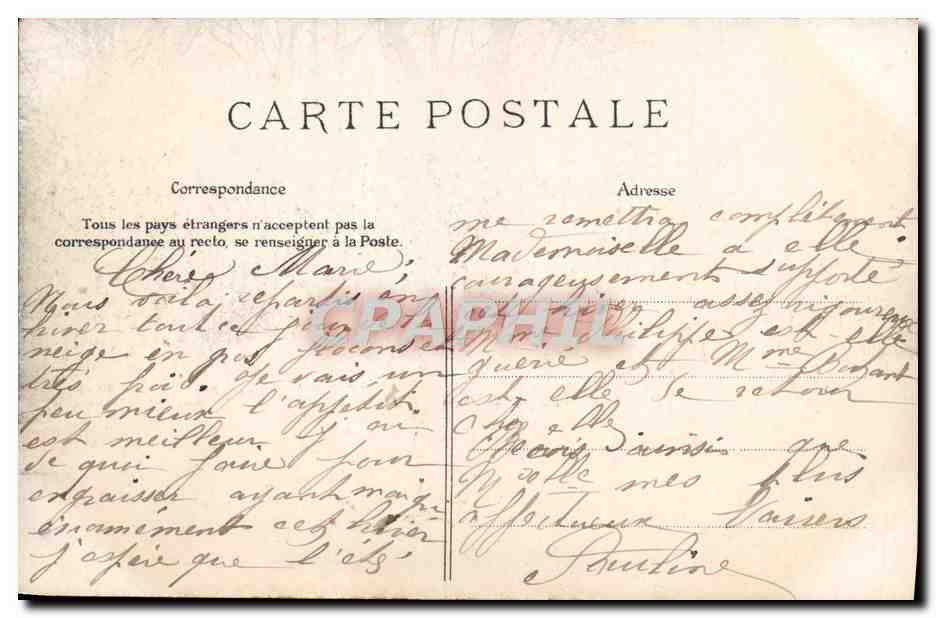 CARTE POSTALE
Correspondance
Tous les pays étrangers n'acceptent pas la
correspondance au recto, se renseigner à la Poste.
Chère Marie,
Nous voila repartis en
hiver tout ce jour
neige en flocons et
très froid. Je vais un
peu mieux l'appétit
est meilleur j'ai
de quoi faire pour
engraisser ayant maigri
énormément cet hiver
j'espère que l'été
Adresse
me remettra complètement
Mademoiselle a elle
courageusement supporté
cet hiver assez rigoureux
Mme Philippe est-elle
guerie et Mme
est-elle de retour
chez elle
ainsi que
mes plus
affectueux baisers
Pauline
CPAPHIL